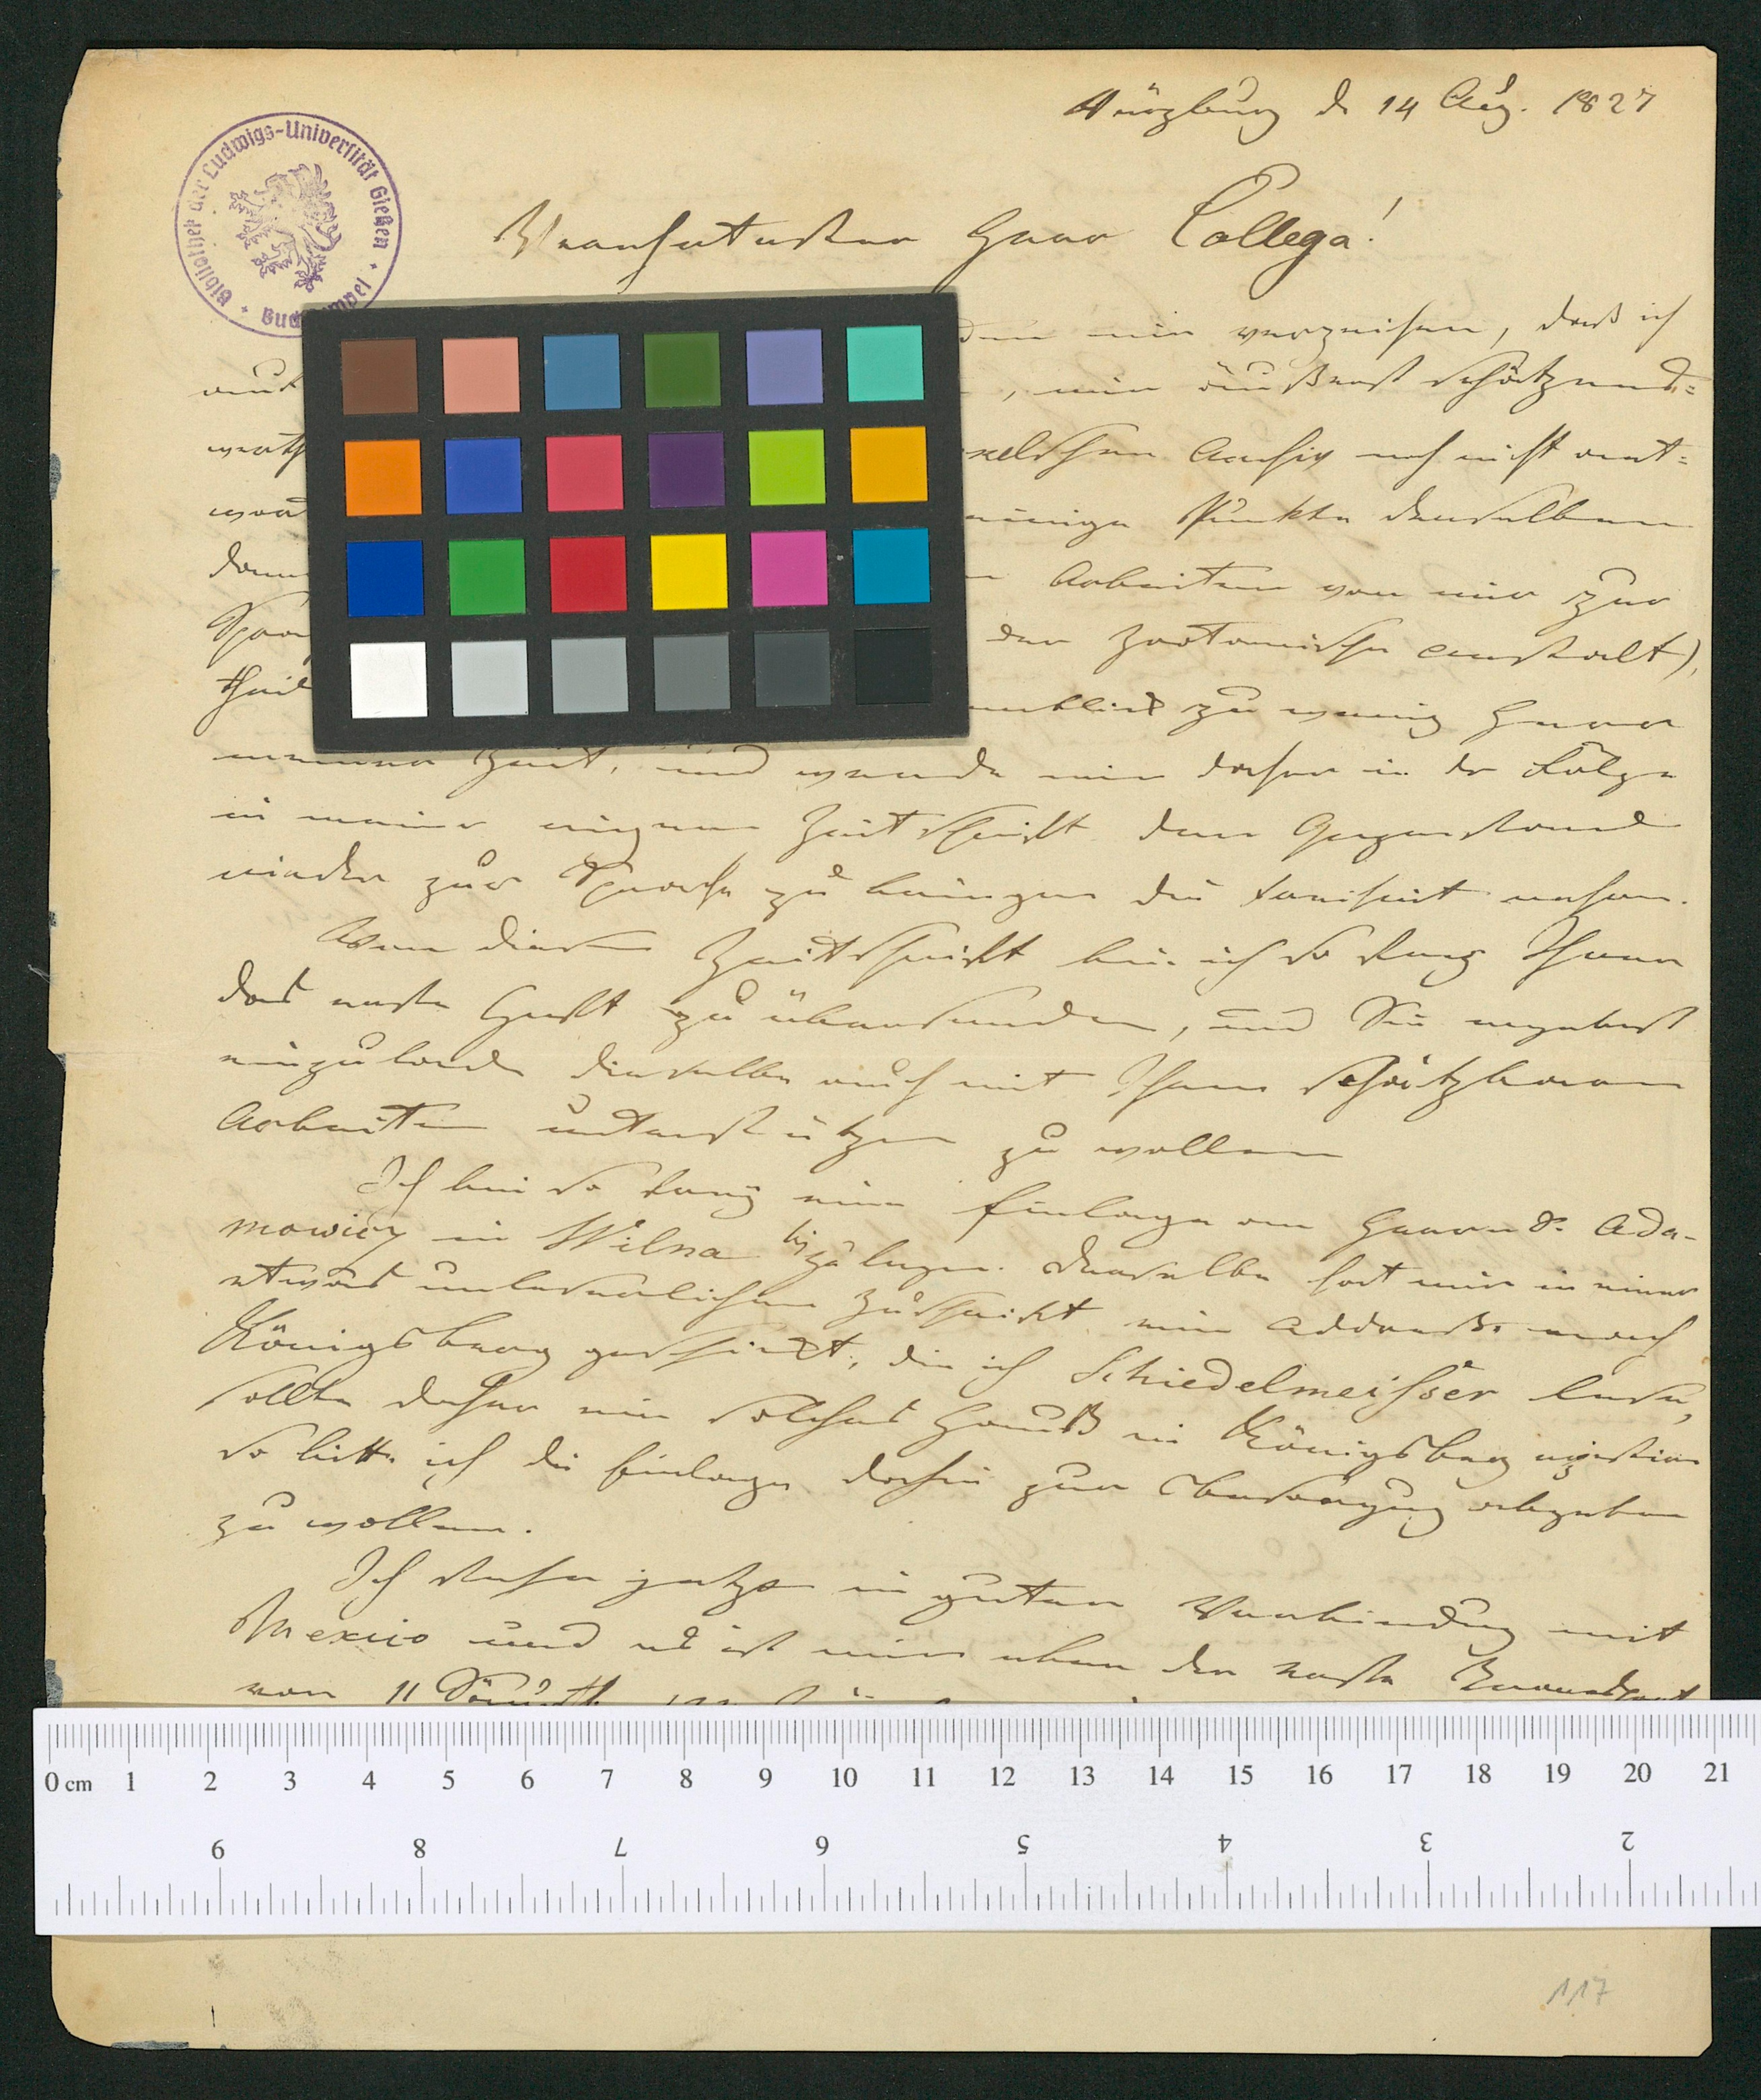 Würzburg d. 14 Aug. 1827
Bibliothek der Ludwigs-Universität Gießen
Verehrtester Herr Collega!
mir verzeihen, daß ich
auf , mir äußerst schätzens=
werth Ansich noch nicht ant=
einige Punkte derselben
dann Arbeiten von mir zur
Spra der zootomischen Anstalt),
theil zu wenig Herr
meiner Zeit, und werde mir daher in der Folge
in meiner eignen Zeitschrift den Gegenstand
wieder zur Sprache zu bringen die Freiheit nehmen.
Von dieser Zeitschrift bin ich so frey Ihnen
das erste Heft zu übersenden, und Sie ergebenst
einzuladen dieselbe auch mit Ihren schätzbaren
Arbeiten unterstützen zu wollen
Ich bin so frey eine Einlage an Herrn Dr. Ada-
mowicz in Wilna beyzulegen. Derselbe hat mir in einer
etwas unleserlichen Zuschrift eine Addresse nach
Königsberg geschickt, die ich Schiedelmeisser lese,
sollte daher ein solches Hauß in Königsberg existiren
so bitte ich die Einlage dahin zur Besorgung abgeben
zu wollen.
Ich stehe jetzt in guter Verbindung mit
Mexico und es ist mir eben der erste Transport
von 11
0 cm 1 2 3 4 5 6 7 8 9 10 11 12 13 14 15 16 17 18 19 20 21
9 8 7 6 5 4 3 2
117